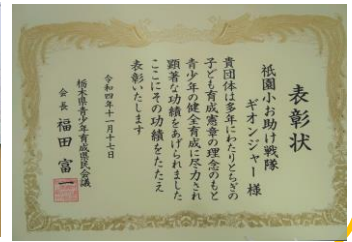 表彰状
祇園小お助け戦隊
ギオンジャー 様
貴団体は多年にわたりとちぎの
子ども育成憲章の理念のもと
青少年の健全育成に尽力され
顕著な功績をあげられました
ここにその功績をたたえ
表彰いたします
令和四年十一月十七日
栃木県青少年育成県民会議
会長 福田富一